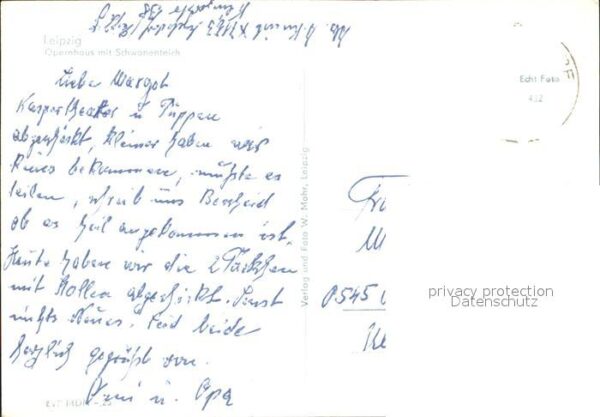 Leipzig
Opernhaus mit Schwanenteich
Liebe Margot
Kaspertheater u Puppen
abgeschickt, kleiner haben wir
keines bekommen, mußte es
teilen, schreib uns Bescheid
ob es heil angekommen ist.
Heute haben wir die 2 Päckchen
mit Stollen abgeschickt. Sonst
nichts Neues. Seid beide
herzlich gegrüßt von
Omi u. Opa
Verlag und Foto W. Mohr, Leipzig
Echt Foto
Fr
M
0545
privacy protection
Datenschutz